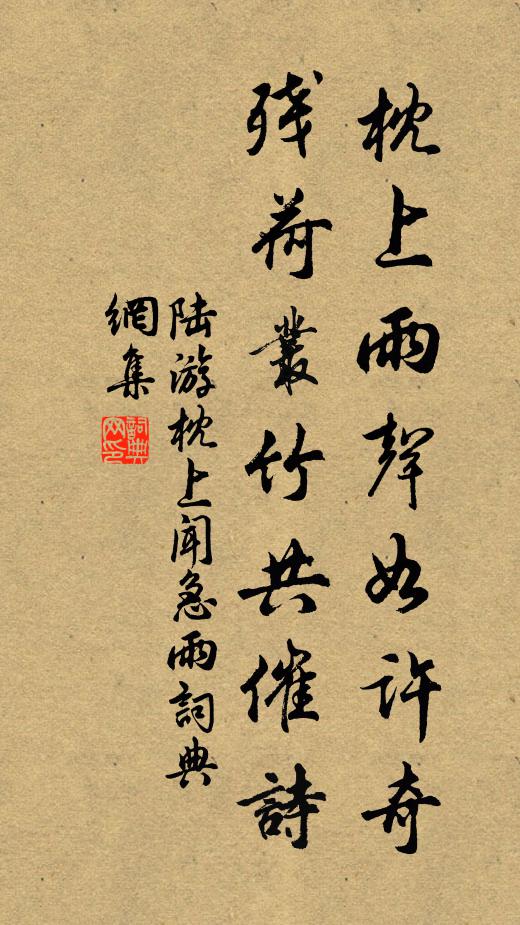 枕上雨聲如许奇
残荷叢竹共催詩
陆游枕上闻急雨詞典
網集
詞典
网印